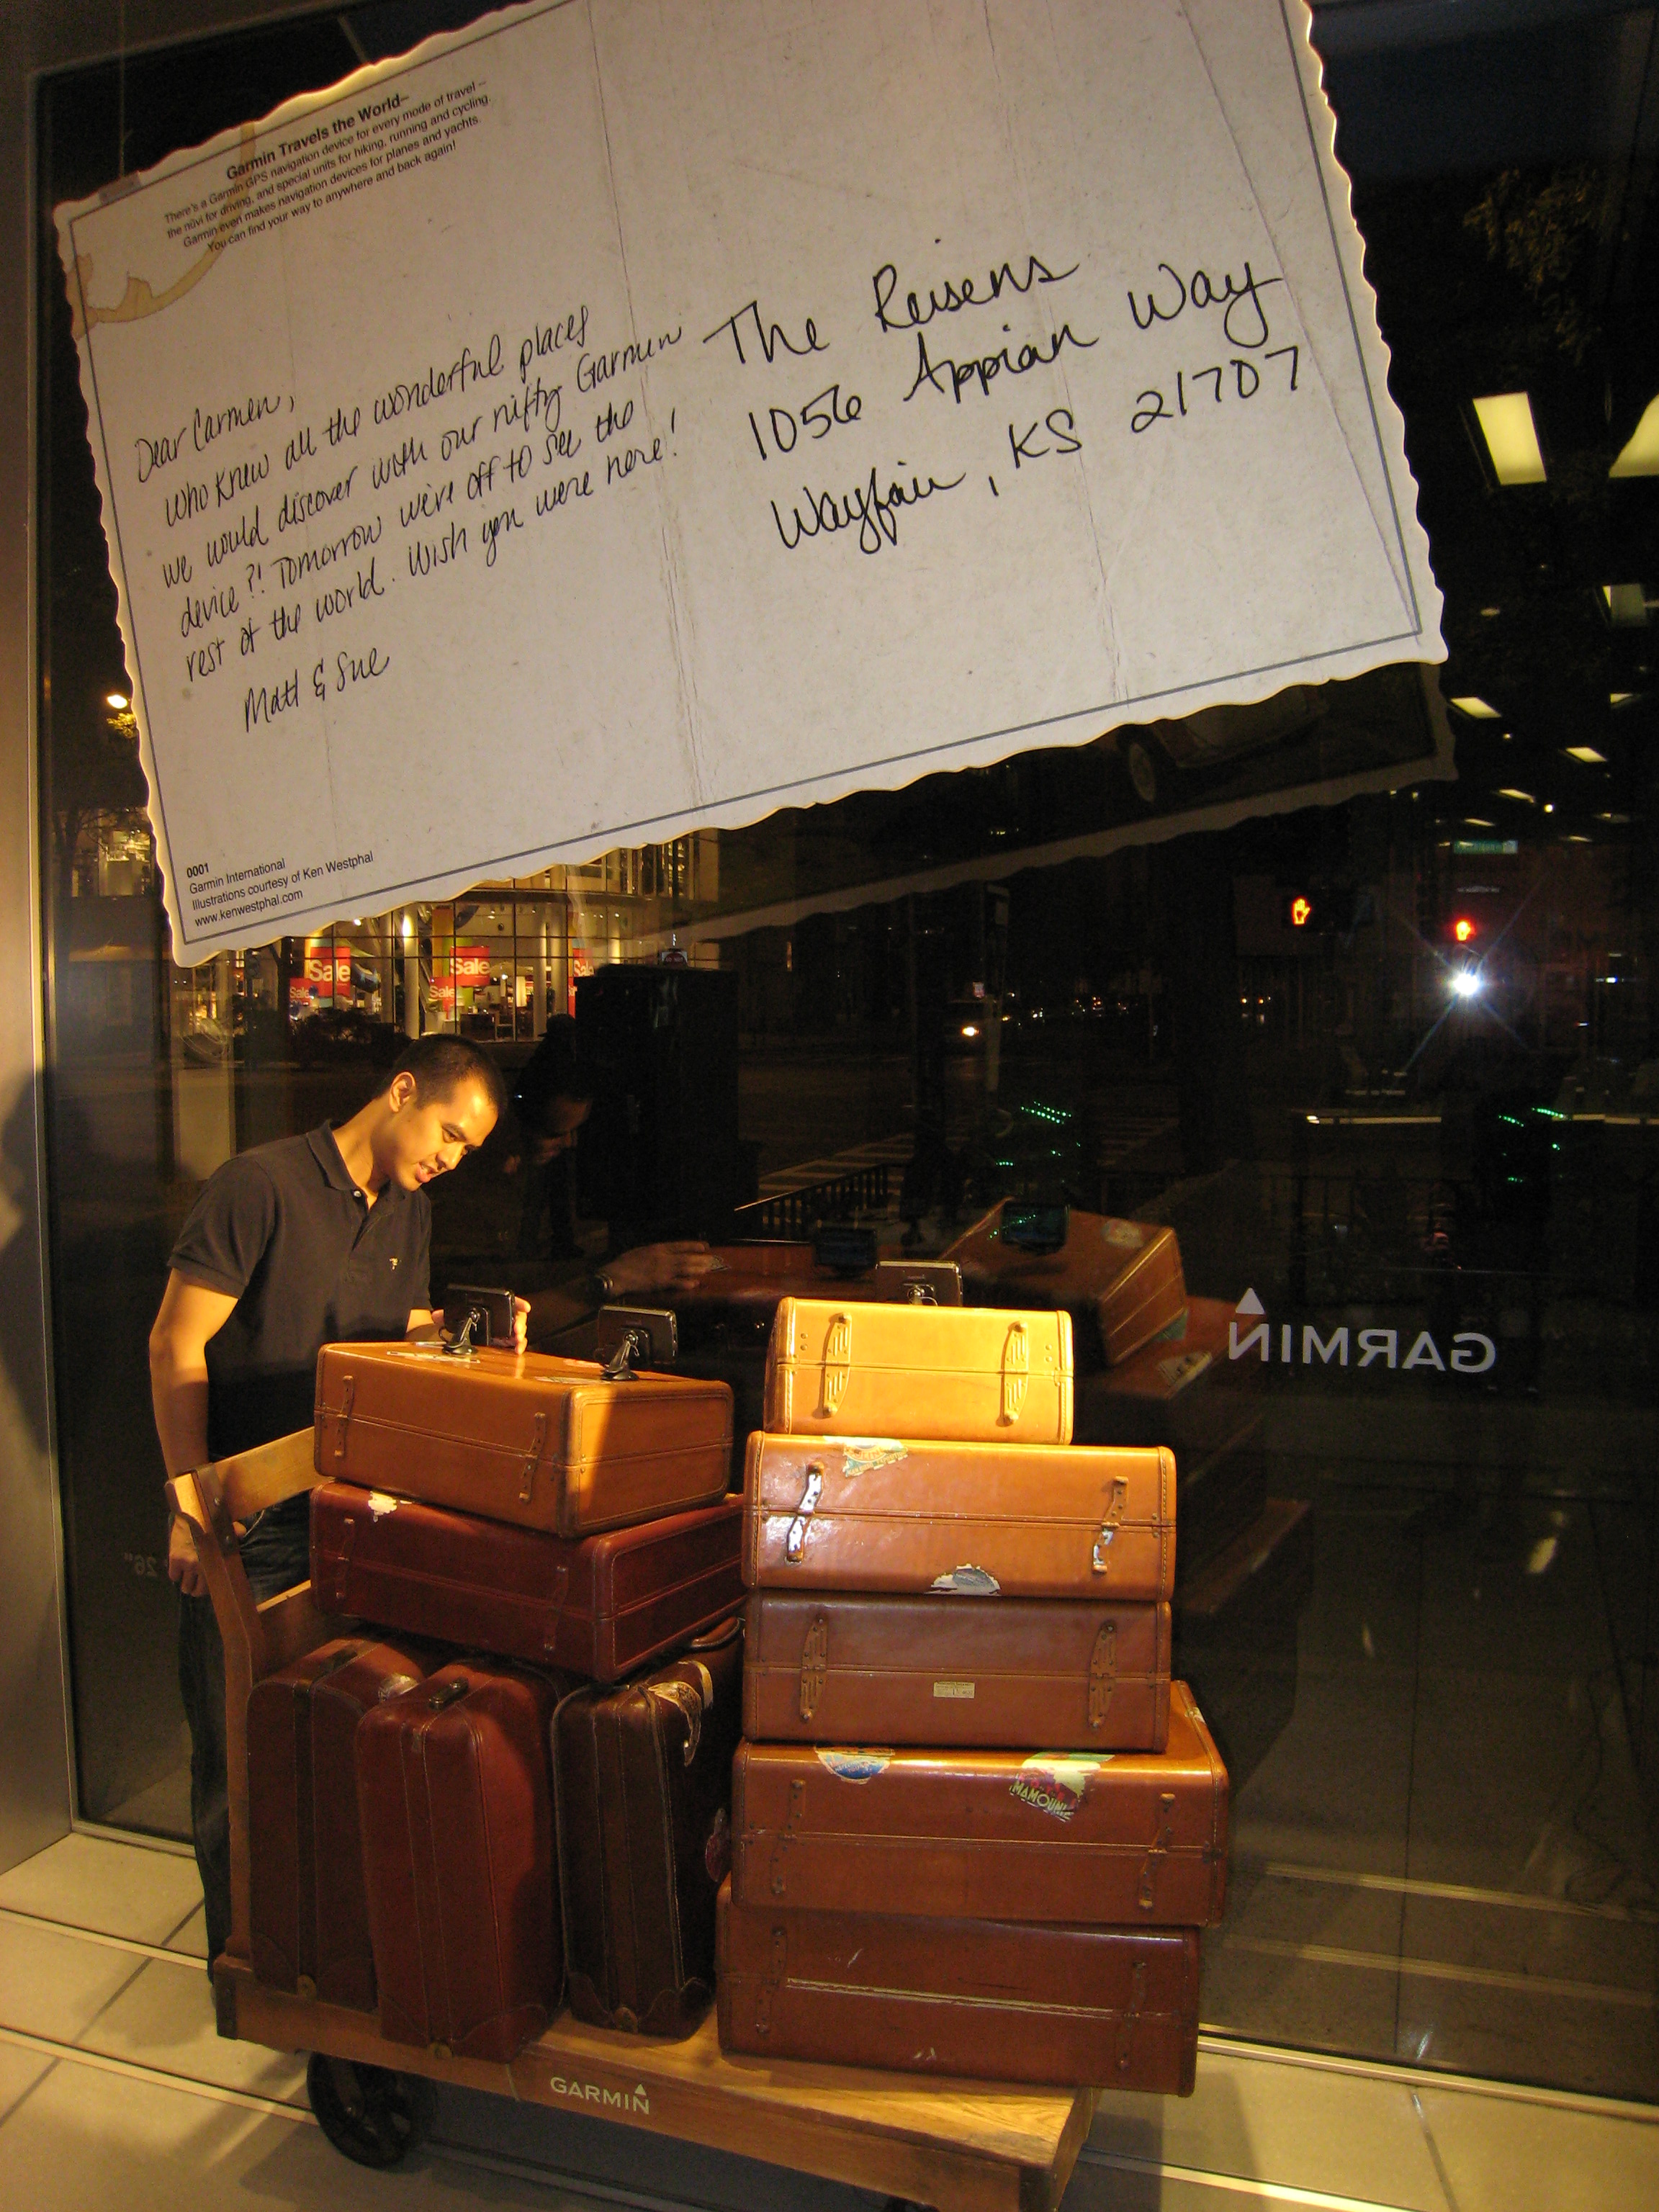 Garmin Travels the World–
There's a Garmin GPS navigation device for every mode of travel –
the nüvi for driving, and special units for hiking, running and cycling.
Garmin even makes navigation devices for planes and yachts.
You can find your way to anywhere and back again!
Dear Carmen,
Who knew all the wonderful places
we would discover with our nifty Garmin
device?! Tomorrow we're off to see the
rest of the world. Wish you were here!
Matt & Sue
The Reisens
1056 Appian Way
Wayfair, KS 21707
0001
Garmin International
Illustrations courtesy of Ken Westphal
www.kenwestphal.com
Sale
Sale
Sale
Sale
GARMIN
MAMOUNIA
GARMIN